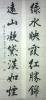 綠水映霞紅勝錦
遠山凝黛淡如煙